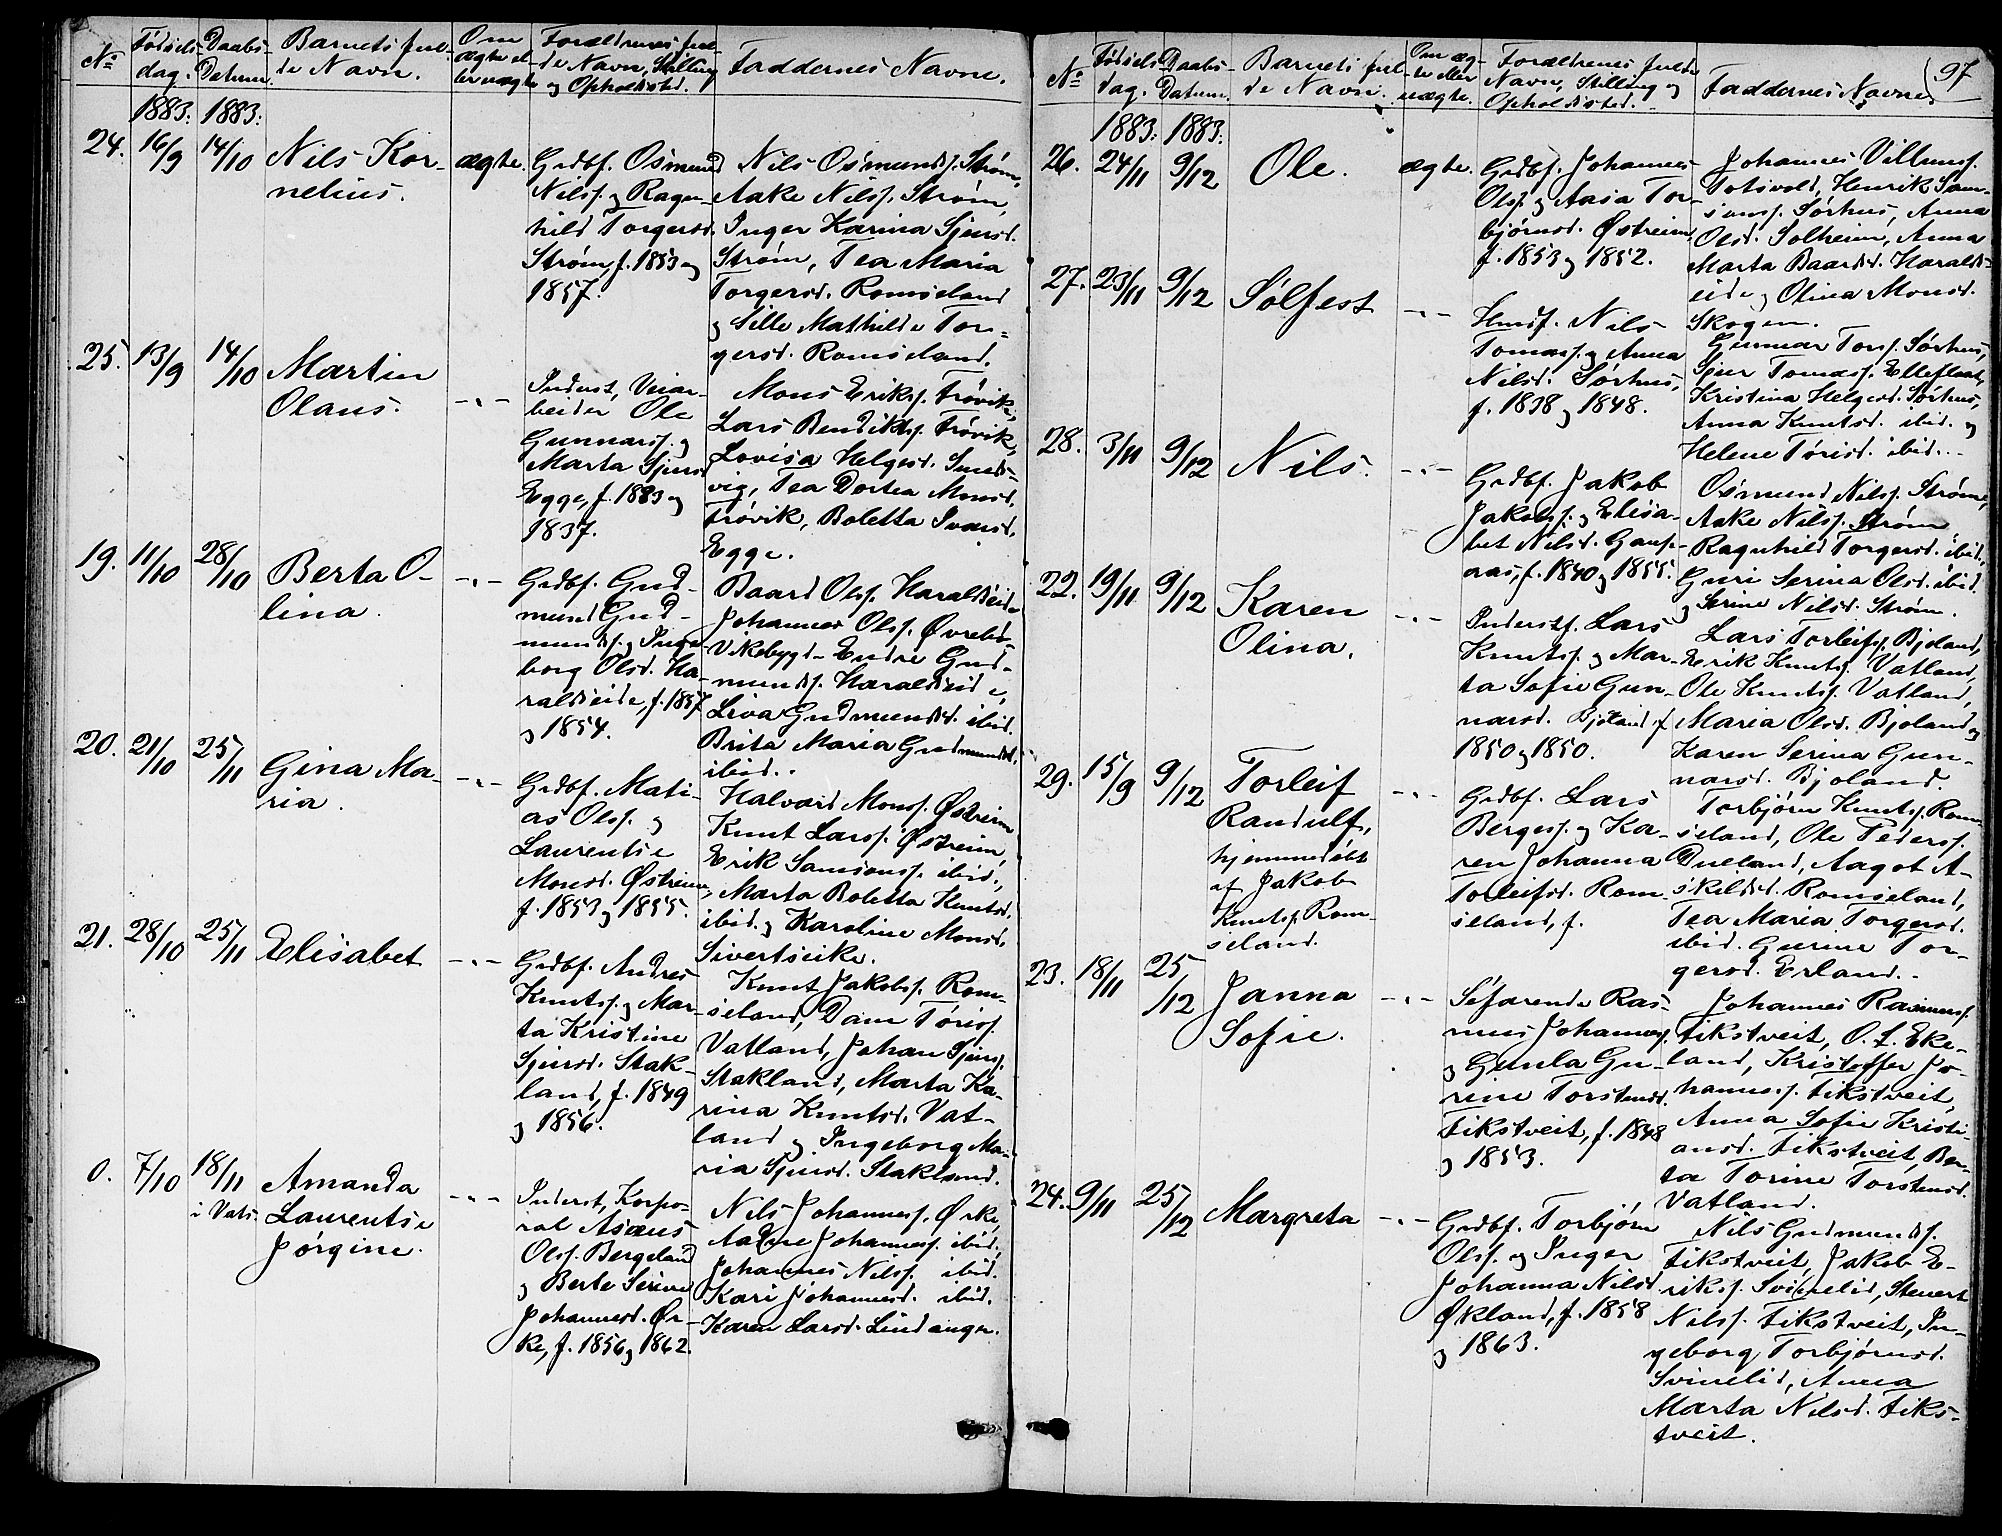 No
Fødsels-
dag.
Daabs-
Datum.
Barnets ful-
de Navn.
Om
ægte el-
ler uægte
Forældrenes ful-
de Navn, Stilling
og Opholdsted.
Faddernes Navne.
1883: 1883:
24. 16/9 14/10 Nils Kor-
nelius.
ægte.
Grdbf. Osmund
Nilss. og Ragn-
hild Torgersd.
Strøm, f. 1853 og
1857.
Nils Osmunds. Strøm,
Aake Nilss. Strøm,
Inger Karina Sjursd.
Strøm, Tea Maria
Torgersd. Romseland
og Sille Mathilde Tor-
gersd. Romseland.
25. 13/9 14/10 Martin
Olaus.
-"-
Inderst, Veiar-
beider Ole
Gunnarss. og
Marta Sjursd.
Egge, f. 1883 og
1837.
Mons Erikss. Frøvik,
Lars Bendikss. Frøvik,
Lovisa Helgesd. Smeds-
vig, Tea Dortea Monsd.
Frøvik, Boletta Ivarsd.
Egge.
19. 11/10 28/10 Berta O-
lina.
-"-
Grdbf. Gud-
mund Gud-
munds. og Inge-
borg Olsd. Ha-
raldseide, f. 1857
og 1854.
Baard Olss. Haraldseide
Johannes Olss. Øvrebø
Vikebygd - Endre Gud-
munds. Haraldseide,
Liva Gudmundsd. ibid.
Brita Maria Gudmundsd.
ibid..
20. 21/10 25/11 Gina Ma-
ria.
-"-
Grdbf. Mati-
as Olss. og
Laurentse
Monsd. Østreim,
f. 1853 og 1855.
Halvard Monss. Østreim
Knut Larss. Østreim,
Erik Samsons. ibid.,
Marta Boletta Knutsd.
ibid. og Karoline Monsd.
Sivertseike.
21. 28/10 25/11 Elisabet
-"-
Grdbf. Andres
Knutss. og Mar-
ta Kristine
Sjursd. Stak-
land, f. 1849
og 1856.
Knut Jakobss. Rom-
seland, Dam Tøriss.
Vatland, Johan Sjurss.
Stakland, Marta Ka-
rina Knutsd. Vat-
land og Ingeborg Ma-
ria Sjursd. Stakland.
0. 7/10 18/11
i Vats.
Amanda
Laurentse
Jørgine.
-"-
Inderst, Korpo-
ral Asaus
Olss. Bergeland
og Berte Serine
Johannesd. Ør-
ke, f. 1856 og 1862.
Nils Johanness. Ørke,
Aadne Johanness. ibid.
Johannes Nilss. ibid.
Kari Johannesd. ibid.
Karen Larsd. Lindanger.
97
No
Fødsels-
dag.
Daabs-
Datum.
Barnets ful-
de Navn.
Om æg-
te eller
uægte.
Forældrenes fulde
Navn, Stilling og
Opholdssted.
Faddernes Navne.
1883: 1883:
26. 24/11 9/12 Ole.
ægte.
Grdbf. Johannes
Olss. og Aasa Tor-
bjørnsd. Østreim,
f. 1853 og 1852.
Johannes Villums.
Totsvold, Henrik Sam-
sons. Sørhus, Anna
Olsd. Solheim, Anna
Marta Baardsd. Haralds-
eide og Olina Monsd.
Skogen.
27. 23/11 9/12 Sølfest
-"-
Husf. Nils
Tomass. og Anna
Nilsd. Sørhus,
f. 1838 og 1848.
Gunnar Torss. Sørhus,
Sjur Tomass. Elleflaat,
Kristina Helgesd. Sørhus,
Anna Knutsd. ibid. og
Helene Tørisd. ibid..
28. 3/11 9/12 Nils.
-"-
Grdbf. Jakob
Jakobss. og Elisa-
bet Nilsd. Gaup-
aas, f. 1840 og 1855.
Osmund Nilss. Strøm,
Aake Nilss. Strøm
Ragnhild Torgersd. ibid,
Guri Serina Olsd. ibid.
og Serine Nilsd. Strøm.
22. 19/11 9/12 Karen
Olina.
-"-
Inderstf. Lars
Knutss. og Mar-
ta Sofie Gun-
narsd. Bjoland f.
1850 og 1850.
Lars Torleifss. Bjoland,
Erik Knutss. Vatland,
Ole Knutss. Vatland,
Maria Olsd. Bjoland og
Karen Serina Gun-
narsd. Bjoland.
29. 15/9 9/12 Torleif
Randulf,
hjemmedøbt
af Jakob
Knutss. Rom-
seland.
-"-
Grdbf. Lars
Bergess. og Ka-
ren Johanna
Torleifsd. Rom-
seland, f.
Torbjørn Knutss. Rom-
seland, Ole Peders.
Dueland, Aagot A-
skildsd. Romseland,
Tea Maria Torgersd.
ibid. Gurine Tor-
gersd. Erland.
23. 18/11 25/12 Janna
Sofie.
-"-
Søfarende Ras-
mus Johanness.
og Gunla Gu-
rine Torstensd.
Fikstveit, f. 1848
og 1853.
Johannes Rasmuss.
Fikstveit, O. L. Eke-
land, Kristoffer Jo-
hanness. Fikstveit,
Anna Sofie Kristi-
ansd. Fikstveit, Ber-
ta Torine Torstensd.
Vatland.
24. 9/11 25/12 Margreta
-"-
Grdbf. Torbjørn
Olss. og Inger
Johanna Nilsd.
Økland, f. 1858
og 1863.
Nils Gudmunds.
Fikstveit, Jakob E-
rikss. Svinelid, Stenert
Nilss. Fikstveit, In-
geborg Torbjørnsd.
Svinelid, Anna
Marta Nilsd. Fiks-
tveit.